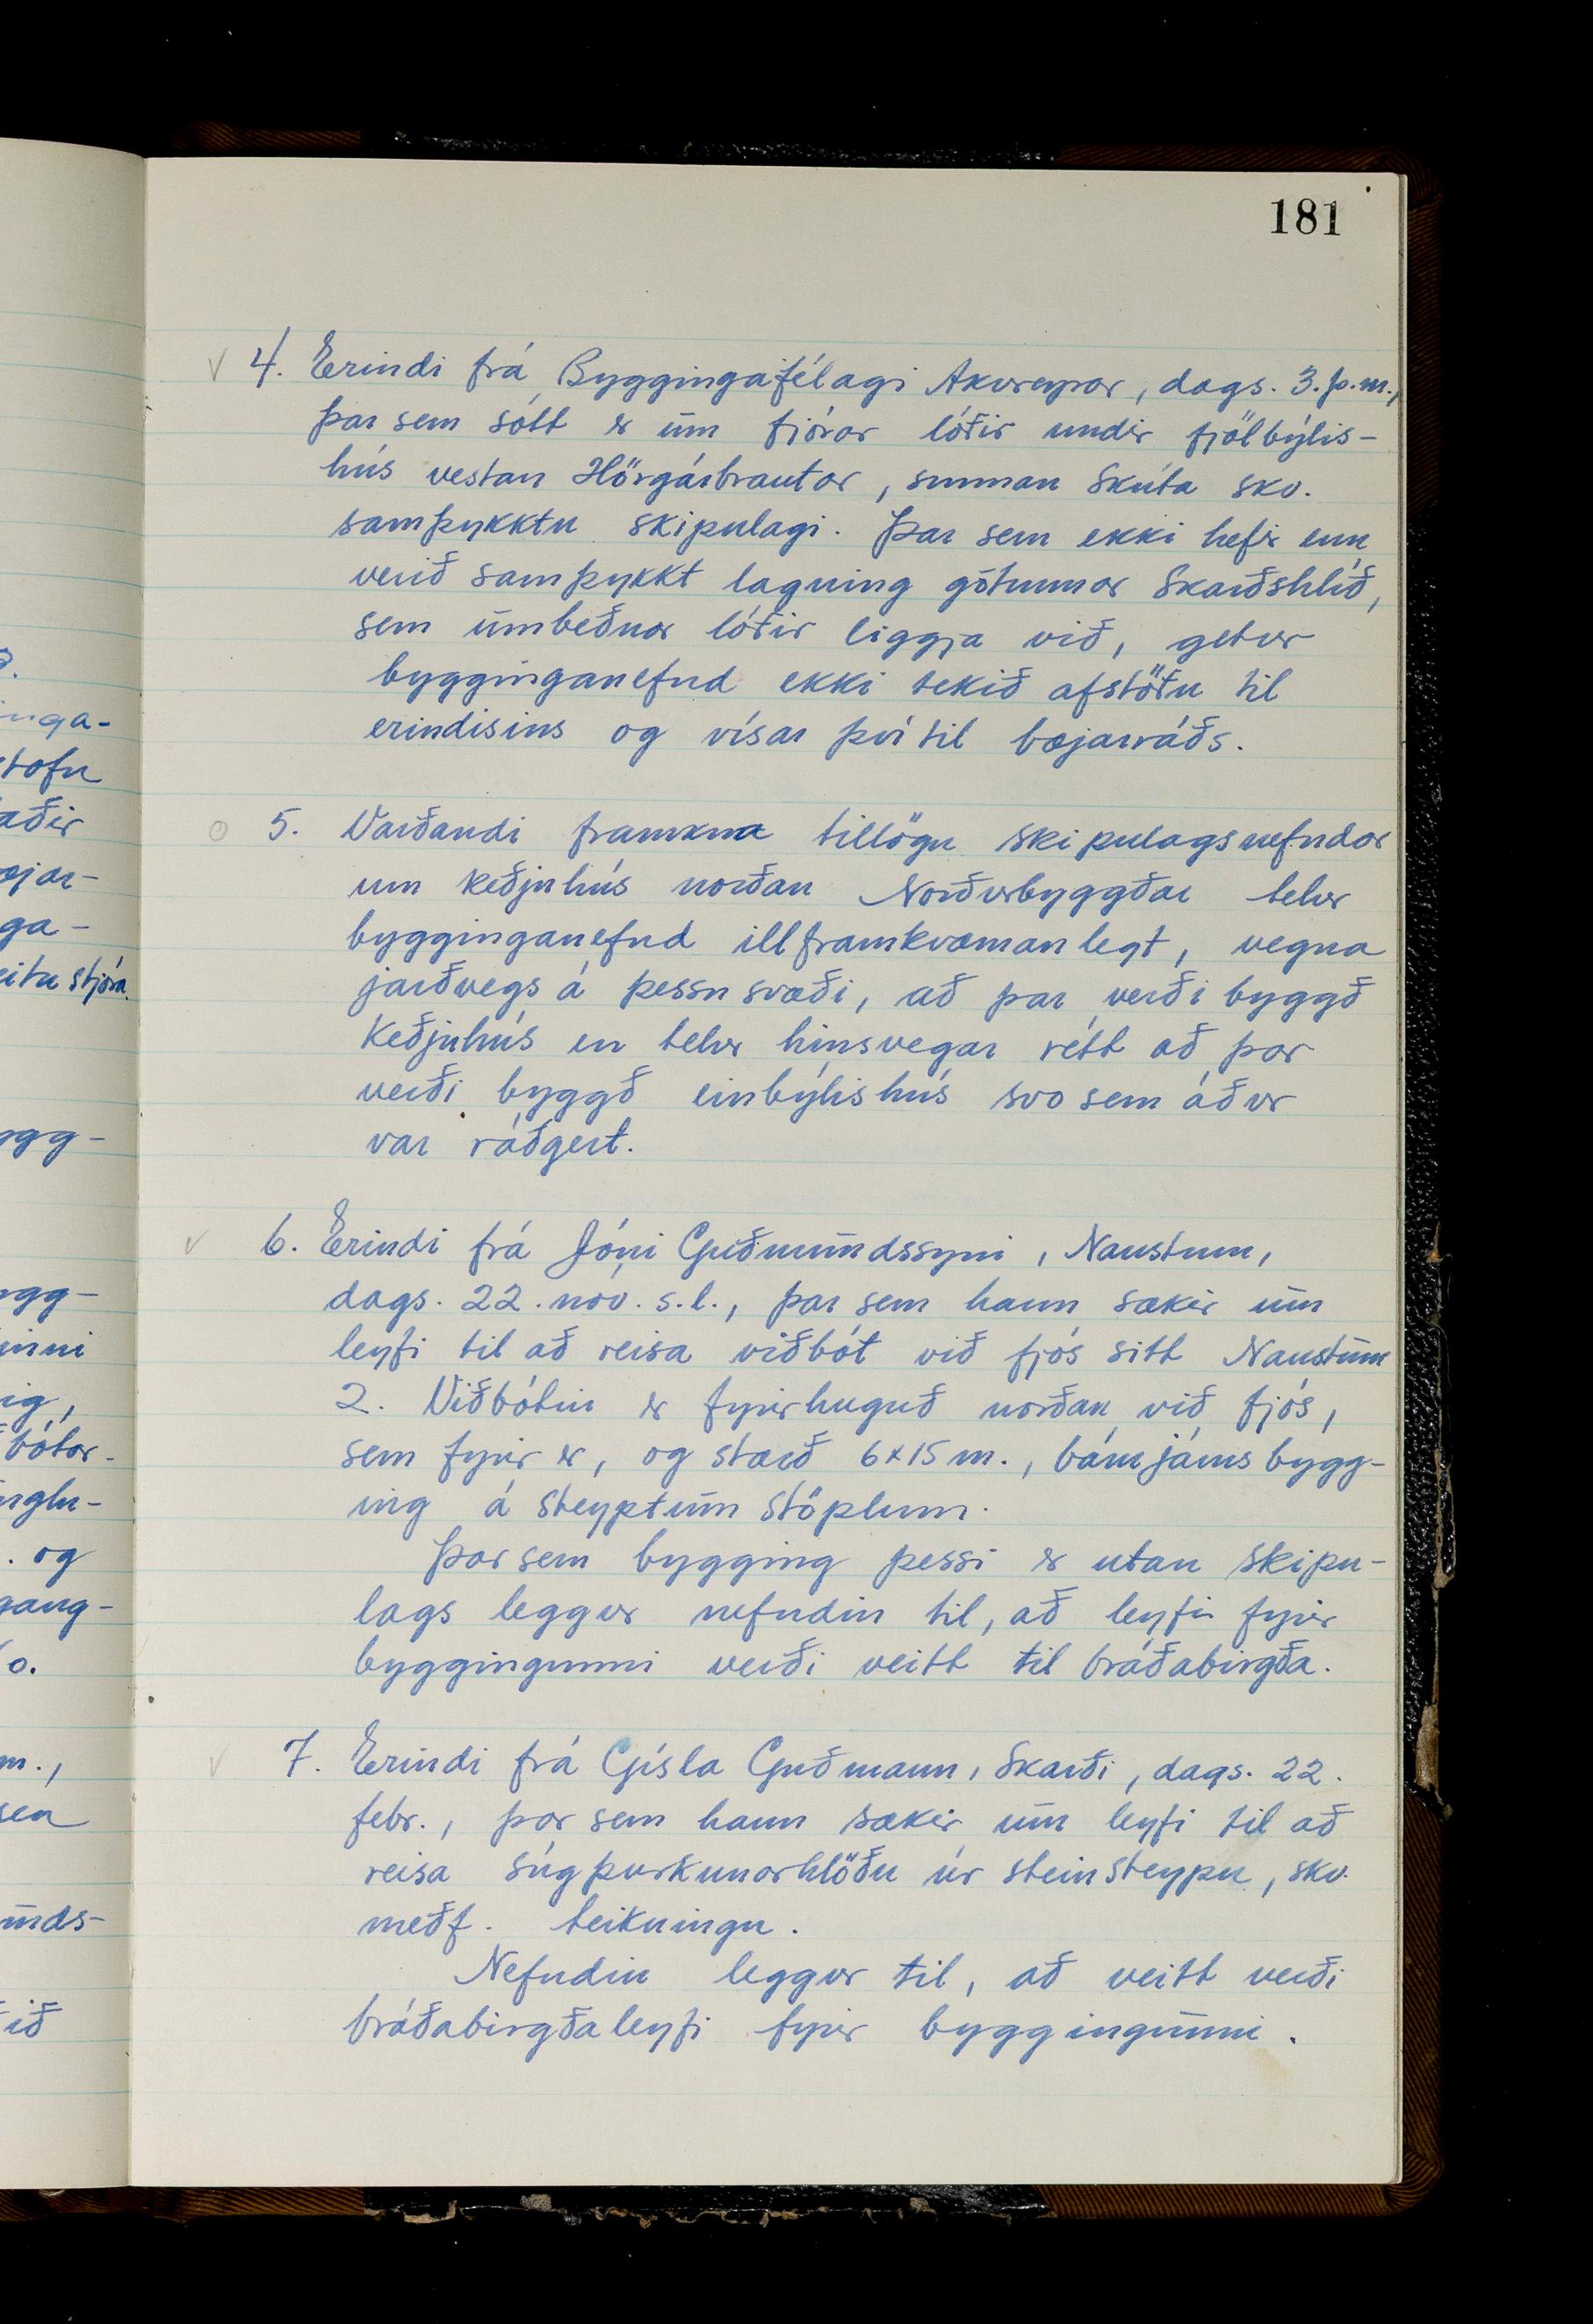 181
4. Erindi frá Byggingafélagi Akureyrar, dags. 3. þ.m.,
þar sem sótt er um fjórar lóðir undir fjölbýlis-
hús vestan Hörgárbrautar, sunnan Skúta skv.
samþykktu skipulagi. Þar sem ekki hefir enn
verið samþykkt lagning götunnar Skarðshlíð,
sem umbeðnar lóðir liggja við, getur
bygginganefnd ekki tekið afstöðu til
erindisins og vísar því til bæjarráðs.
5. Varðandi framkna tillögu skipulagsnefndar
um keðjuhús norðan Norðurbyggðar telur
bygginganefnd illframkvæmanlegt, vegna
jarðvegs á þessu svæði, að þar verði byggð
keðjuhús en telur hinsvegar rétt að þar
verði byggð einbýlishús svo sem áður
var ráðgert.
6. Erindi frá Jóni Guðmundssyni, Naustum,
dags. 22. nóv. s.l., þar sem hann sækir um
leyfi til að reisa viðbót við fjós sitt Naustum
2. Viðbótin er fyrirhuguð norðan við fjós,
sem fyrir er, og stærð 6x15 m., bárujárnsbygg-
ing á steyptum stöplum.
Þar sem bygging þessi er utan skipu-
lags leggur nefndin til, að leyfi fyrir
byggingunni verði veitt til bráðabirgða.
7. Erindi frá Gísla Guðmann, Skarði, dags. 22.
febr., þar sem hann sækir um leyfi til að
reisa súgþurkunarhlöðu úr steinsteypu, skv.
meðf. teikningu.
Nefndin leggur til, að veitt verði
bráðabirgðaleyfi fyrir byggingunni.